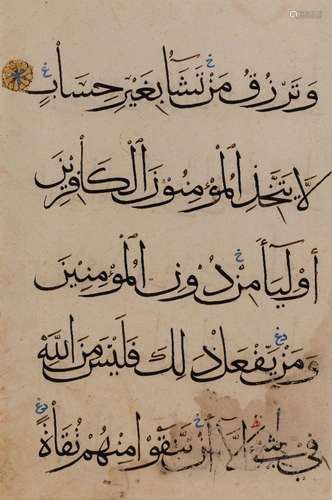 وَتَرْزُقُ مَنْ تَشَآءُ بِغَيْرِ حِسَابٍ
لَا يَتَّخِذِ الْمُؤْمِنُونَ الْكَافِرِينَ
أَوْلِيَآءَ مِنْ دُونِ الْمُؤْمِنِينَ
وَمَنْ يَفْعَلْ ذَلِكَ فَلَيْسَ مِنَ اللَّهِ
فِي شَيْءٍ إِلَّآ أَنْ تَتَّقُوا مِنْهُمْ تُقَاةً